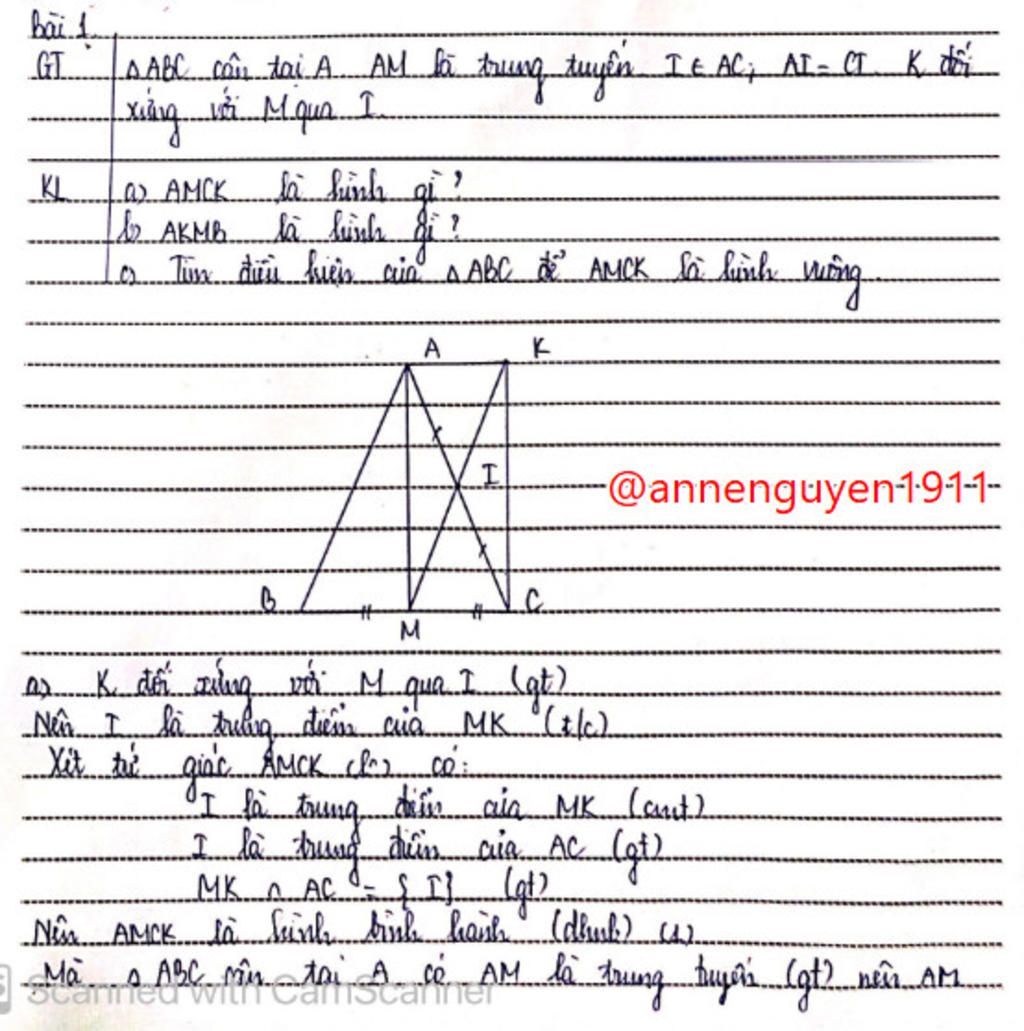 Bài 1.
GT ΔABC cân tại A. AM là trung tuyến. I ∈ AC; AI = CI. K đối
xứng với M qua I.
KL a) AMCK là hình gì?
b) AKMB là hình gì?
c) Tìm điều kiện của ΔABC để AMCK là hình vuông.
A K
I
@annenguyen1911
B C
M
a) K đối xứng với M qua I (gt)
Nên I là trung điểm của MK (t/c)
Xét tứ giác AMCK có:
I là trung điểm của MK (cmt)
I là trung điểm của AC (gt)
MK ∩ AC = {I} (gt)
Nên AMCK là hình bình hành (dhnb) (1)
Mà ΔABC cân tại A có AM là trung tuyến (gt) nên AM
Scanned with CamScanner